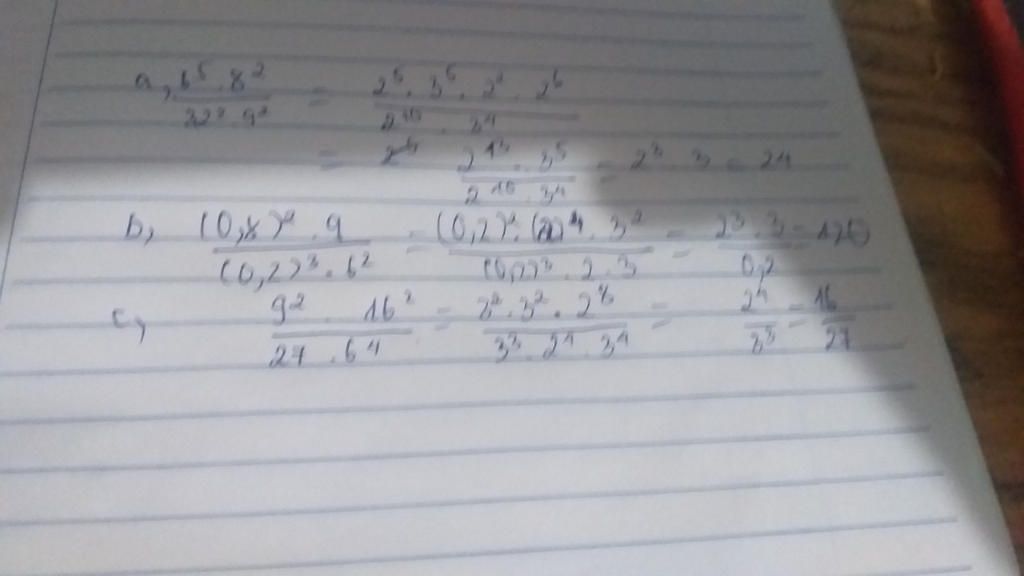 a, \frac{6^5 . 8^2}{32^2 . 9^2} = \frac{2^5 . 3^5 . 2^2 . 2^6}{2^{10} . 3^4}
= \frac{2^{13} . 3^5}{2^{10} . 3^4} = 2^3 . 3 = 24
b, \frac{(0,8)^2 . 9}{(0,2)^3 . 6^2} = \frac{(0,2)^2 . (2)^4 . 3^2}{(0,2)^3 . 2 . 3} = \frac{2^3 . 3}{0,2} = 120
c, \frac{9^2 . 16^2}{27 . 6^4} = \frac{3^2 . 3^2 . 2^8}{3^3 . 2^4 . 3^4} = \frac{2^4}{3^3} = \frac{16}{27}